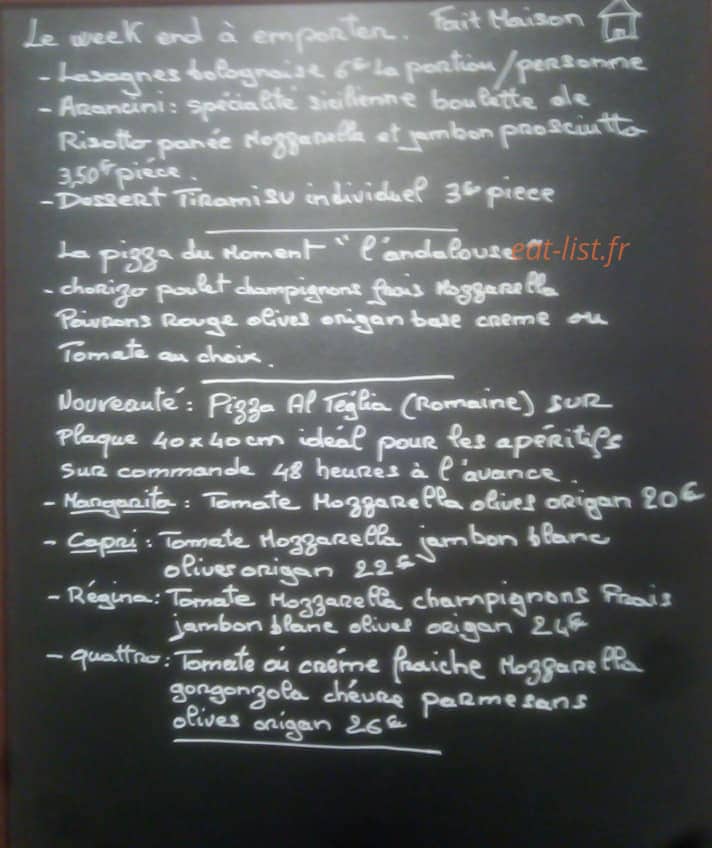 Le week end à emporter. Fait Maison
- Lasagnes bolognaise 6€ la portion/personne
- Arancini: spécialité sicilienne boulette de
Risotto panée Mozzarella et jambon prosciutto
3,50€ pièce.
- Dessert Tiramisu individuel 3€ piece
La pizza du Moment " l'andalouse
eat-list.fr
- chorizo poulet champignons frais Mozzarella
Poivrons Rouge olives origan base creme ou
Tomate au choix.
Nouveauté: Pizza Al Téglia (Romaine) sur
Plaque 40x40cm idéal pour les apéritifs
Sur commande 48 heures à l'avance.
- Margarita: Tomate Mozzarella olives origan 20€
- Capri: Tomate Mozzarella jambon blanc
olives origan 22€
- Régina: Tomate Mozzarella champignons Frais
jambon blanc olives origan 24€
- quattro: Tomate ou crème fraiche Mozzarella
gorgonzola chévre parmesans
olives origan 26€